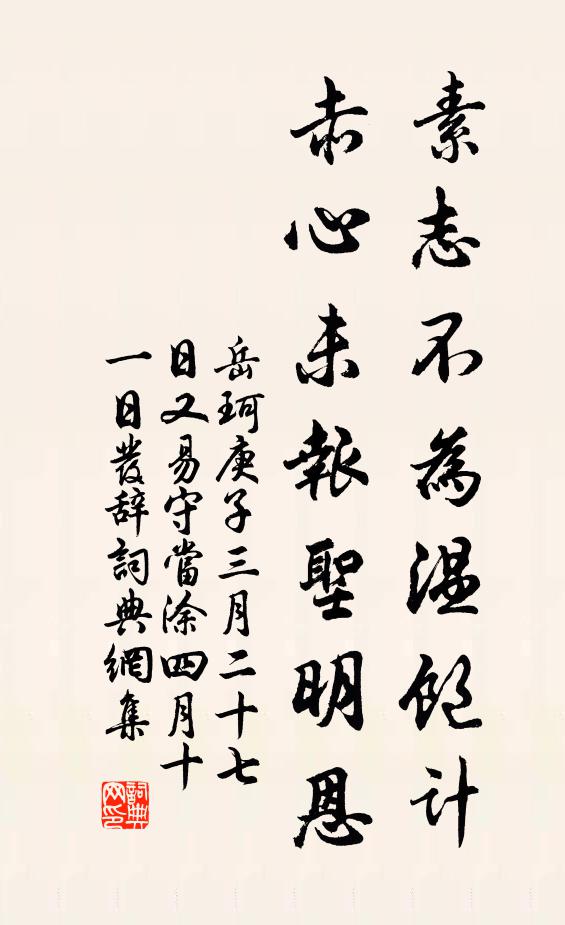 素志不為温飽计
赤心未報聖明恩
岳珂庚子三月二十七
日又易守當涂四月十
一日發辞詞典網集
詞典
网印